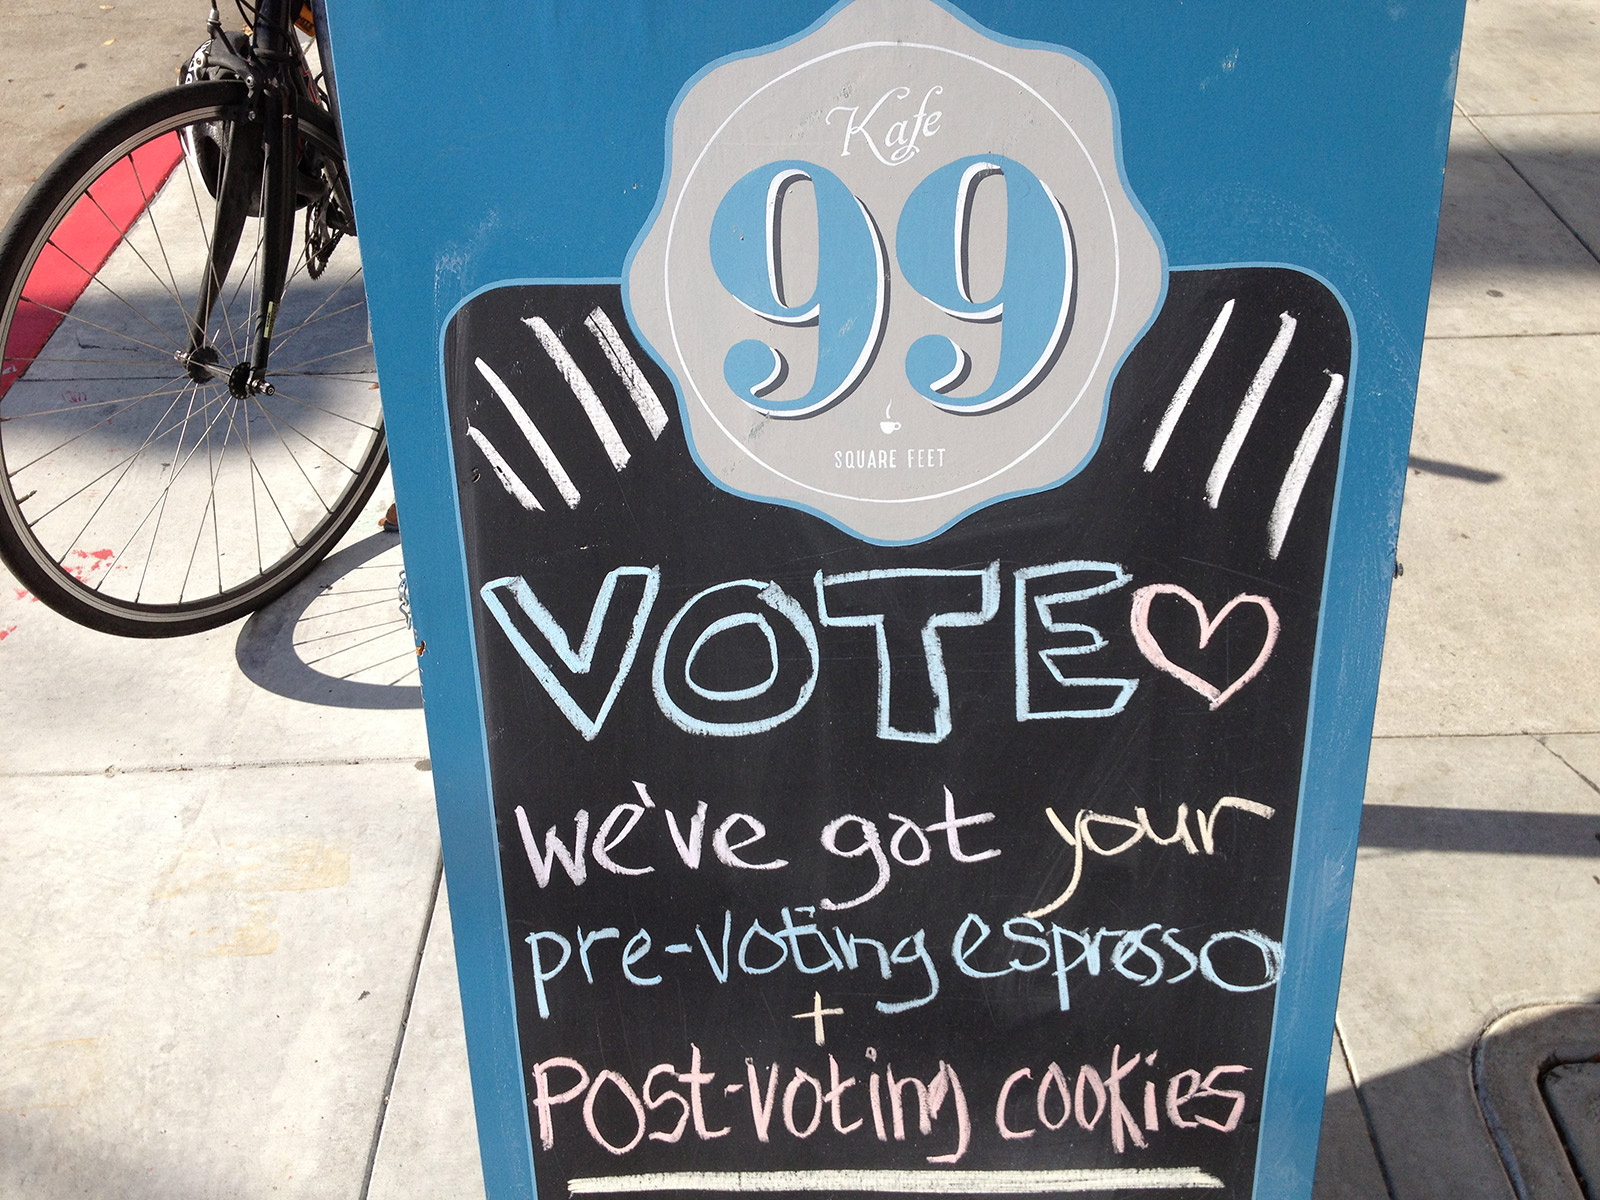 Kafe
99
SQUARE FEET
VOTE
we've got your
pre-voting espresso
+
Post-voting cookies